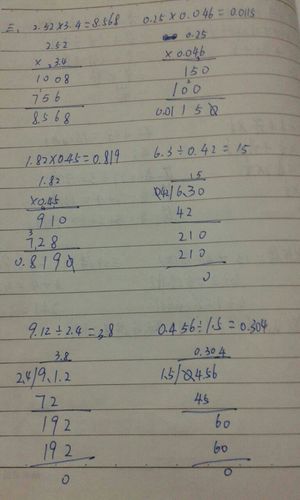 三、 2.52×3.4=8.568  0.25×0.046=0.0115
2.52
× 3.4
1008
756
8568
0.25
×0.046
150
100
0.01150
1.82×0.45=0.819  6.3÷0.42=15
1.82
×0.45
910
728
0.8190
15
0.42/6.30
42
210
210
0
9.12÷2.4=3.8  0.456÷1.5=0.304
3.8
2.4/9.1.2
72
192
192
0
0.304
1.5/0.456
45
60
60
0